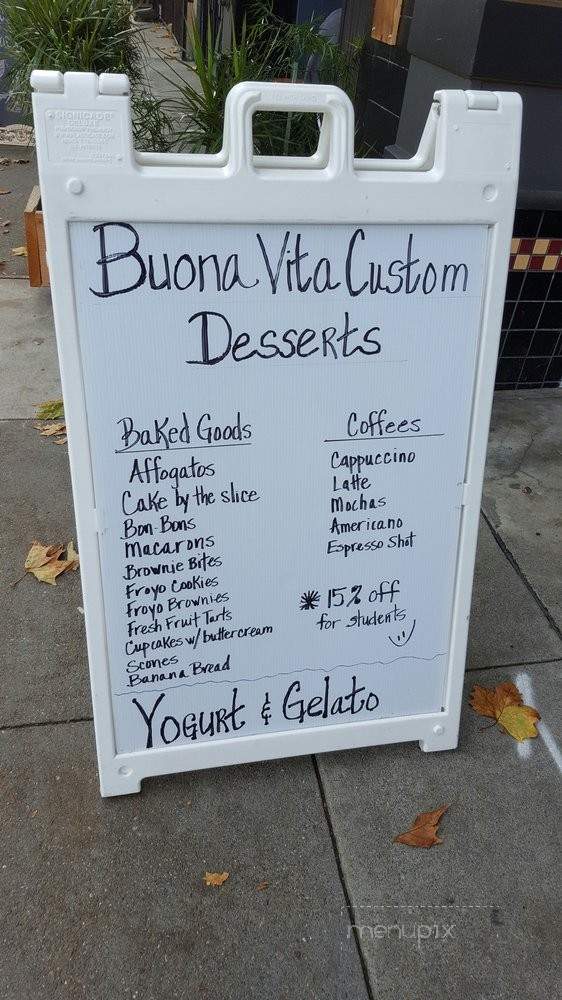 SIGNICADE®
DELUXE
Buona Vita Custom
Desserts
Baked Goods
Affogatos
Cake by the slice
Bon-Bons
Macarons
Brownie Bites
Froyo Cookies
Froyo Brownies
Fresh Fruit Tarts
Cupcakes w/ buttercream
Scones
Banana Bread
Coffees
Cappuccino
Latte
Mochas
Americano
Espresso Shot
* 15% off
for students
Yogurt & Gelato
menupix